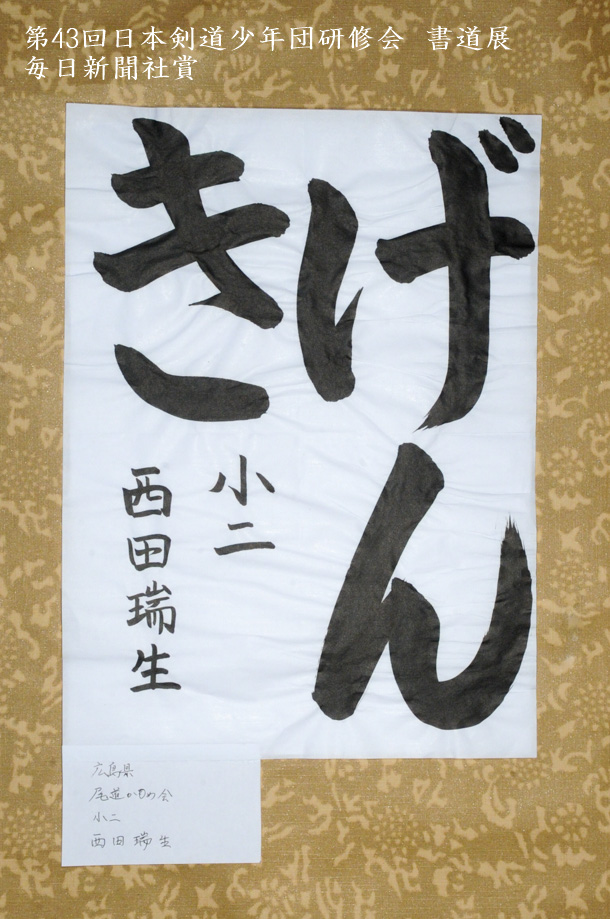 第43回日本剣道少年団研修会 書道展
毎日新聞社賞
げん
き
小二
西田瑞生
広島県
尾道かもめ会
小二
西田瑞生